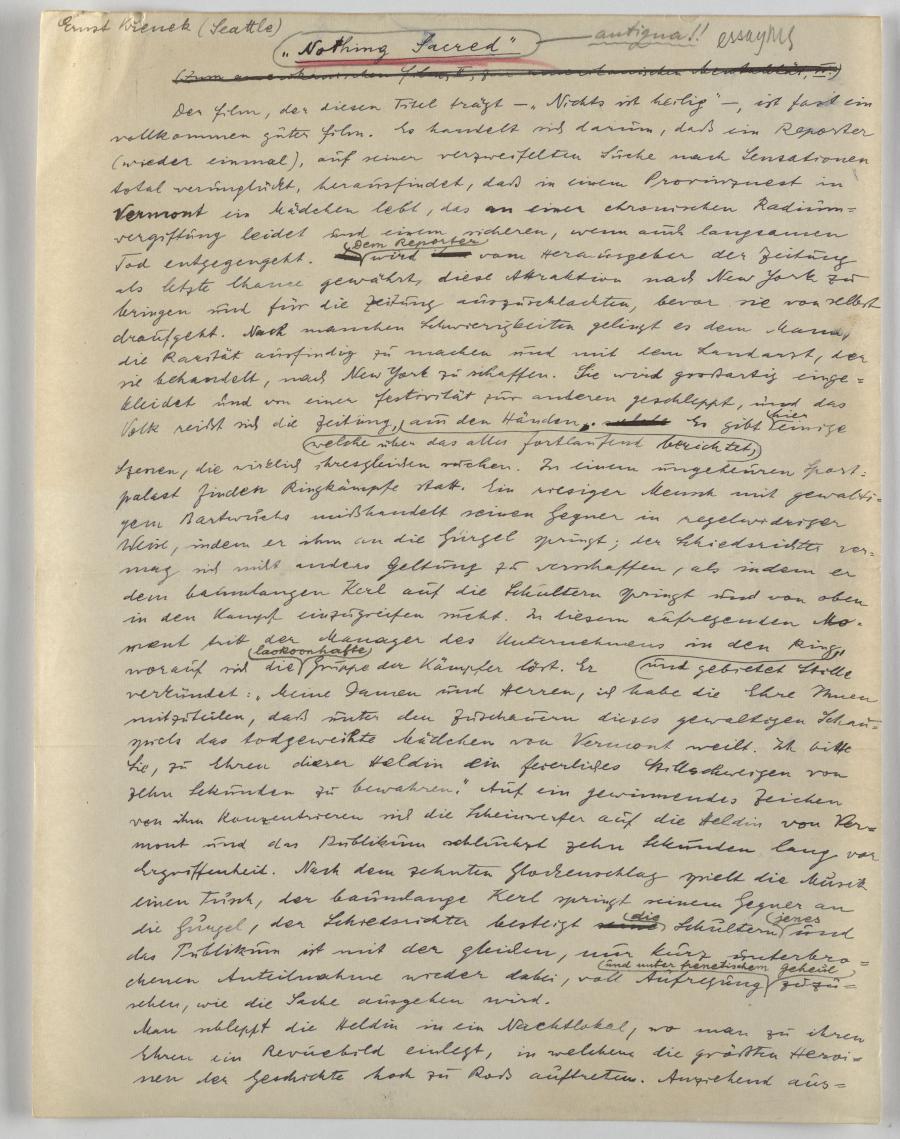 Ernst Křenek (Seattle)
"Nothing Sacred" — antiqua!! essay MS
(Zum amerikanischen Film, II, zur amerikanischen Mentalität, II.)
Der Film, der diesen Titel trägt — "Nichts ist heilig" —, ist fast ein
vollkommen guter Film. Es handelt sich darum, daß ein Reporter
(wieder einmal), auf seiner verzweifelten Suche nach Sensationen
total verunglückt, herausfindet, daß in einem Provinznest in
Vermont ein Mädchen lebt, das an einer chronischen Radium=
vergiftung leidet und einem sicheren, wenn auch langsamen
Tod entgegengeht. Dem Reporter wird vom Herausgeber der Zeitung
als letzte Chance gewährt, diese Attraktion nach New York zu
bringen und für die Zeitung auszuschlachten, bevor sie von selbst
draufgeht. Nach manchen Schwierigkeiten gelingt es dem Mann,
die Rarität ausfindig zu machen und mit dem Landarzt, der
sie behandelt, nach New York zu schaffen. Sie wird großartig einge=
kleidet und von einer Festivität zur anderen geschleppt, und das
Volk reißt sich die Zeitung, welche über das alles fortlaufend berichtet, aus den Händen. Es gibt hier einige
Szenen, die wirklich ihresgleichen suchen. In einem ungeheuren Sport=
palast finden Ringkämpfe statt. Ein riesiger Mensch mit gewalti=
gem Bartwuchs mißhandelt seinen Gegner in regelwidriger
Weise, indem er ihm an die Gurgel springt; der Schiedsrichter ver=
mag sich nicht anders Geltung zu verschaffen, als indem er
dem baumlangen Kerl auf die Schultern springt und von oben
in den Kampf einzugreifen sucht. In diesem aufregenden Mo=
ment tritt der Manager des Unternehmens in den Ring,
worauf sich die laokoonhafte Gruppe der Kämpfer löst. Er und gebietet Stille
verkündet: "Meine Damen und Herren, ich habe die Ehre Ihnen
mitzuteilen, daß unter den Zuschauern dieses gewaltigen Schau=
spiels das todgeweihte Mädchen von Vermont weilt. Ich bitte
Sie, zu Ehren dieser Heldin ein feierliches Stillschweigen von
zehn Sekunden zu bewahren." Auf ein gewinnendes Zeichen
von ihm konzentrieren sich die Scheinwerfer auf die Heldin von Ver=
mont und das Publikum schluchzt zehn Sekunden lang vor
Ergriffenheit. Nach dem zehnten Glockenschlag spielt die Musik
einen Tusch, der baumlange Kerl springt seinem Gegner an
die Gurgel, der Schiedsrichter besteigt die Schultern jenes und
das Publikum ist mit der gleichen, nur kurz unterbro=
chenen Anteilnahme wieder dabei, voll Aufregung und unter frenetischem Geheul zuzu=
sehen, wie die Sache ausgehen wird.
Man schleppt die Heldin in ein Nachtlokal, wo man zu ihren
Ehren ein Revuebild einlegt, in welchem die größten Heroi=
nen der Geschichte hoch zu Roß auftreten. Anziehend aus=